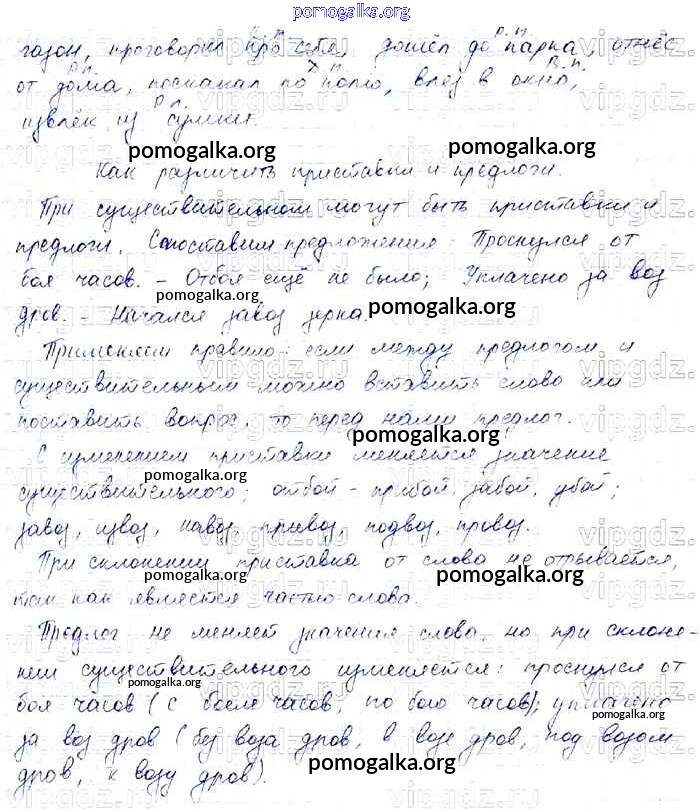 pomogalka.org
газон, проговорил про себя, дошёл до парка, отнёс
от дома, поскакал по полю, влез в окно,
извлёк из сумки.
Как различить приставки и предлоги.
При существительном могут быть приставки и
предлоги. Сопоставим предложения: Проснулся от
боя часов. – Отбоя ещё не было; Уплачено за воз
дров. – Начался завоз зерна.
Применяем правило: если между предлогом и
существительным можно вставить слово или
поставить вопрос, то перед нами предлог.
С изменением приставки меняется значение
существительного: отбой – прибой, забой, убой;
завоз, извоз, навоз, привоз, подвоз, провоз.
При склонении приставка от слова не отрывается,
так как является частью слова.
Предлог не меняет значения слова, но при склоне-
нии существительного изменяется: проснулся от
боя часов (с боем часов, по бою часов); уплачено
за воз дров (без воза дров, в возе дров, под возом
дров, к возу дров).